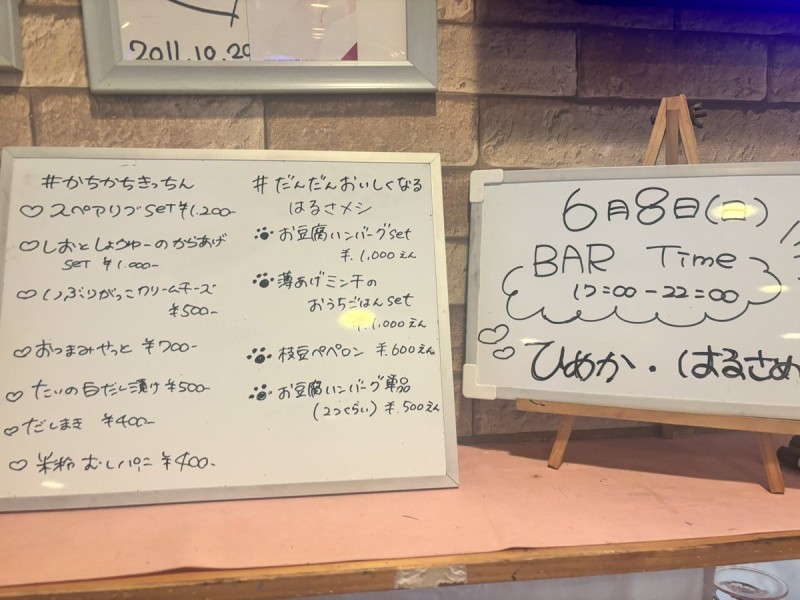 2011.10.20
#かちかちきっちん
♡スペアリブSET ¥1,200-
♡しおとしょうゆーのからあげ
SET ¥1,000-
♡いぶりがっこクリームチーズ
¥500-
♡おつまみやっと ¥700-
♡たいの白だし漬け ¥500-
♡だしまき ¥400-
♡米粉むしパン ¥400-
#だんだんおいしくなる
はるさメシ
お豆腐ハンバーグset
¥.1,000えん
薄あげミンチの
おうちごはんset
¥.1,000えん
枝豆ペペロン ¥.600えん
お豆腐ハンバーグ単品
(2つくらい) ¥.500えん
6月8日(日)
BAR Time
17:00-22:00
ひめか・はるさめ